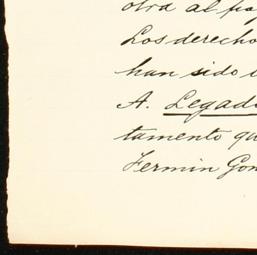 otra al pa
Los derecho
han sido
A. Legad
tamento qu
Fermin Gon